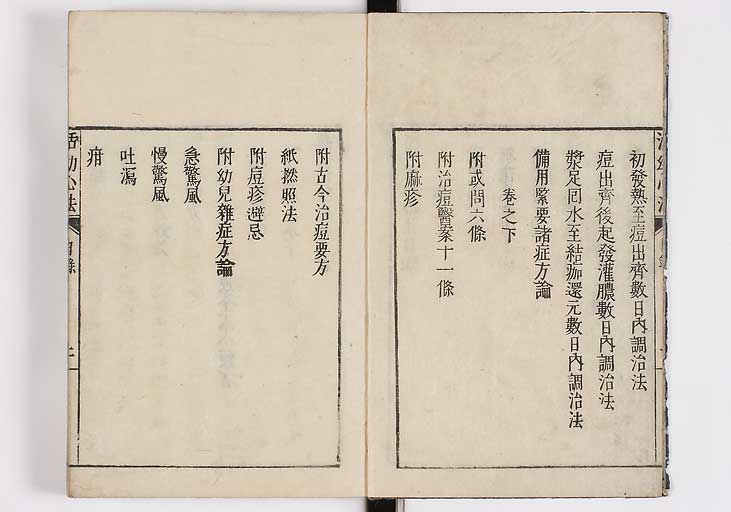 初發熱至痘出齊數日內調治法
痘出齊後起發灌膿數日內調治法
漿足囘水至結痂還元數日內調治法
備用緊要諸症方論
卷之下
附或問六條
附治痘醫案十一條
附麻疹
附古今治痘要方
紙撚照法
附痘疹避忌
附幼兒雜症方論
急驚風
慢驚風
吐瀉
疳
活幼心法
目錄